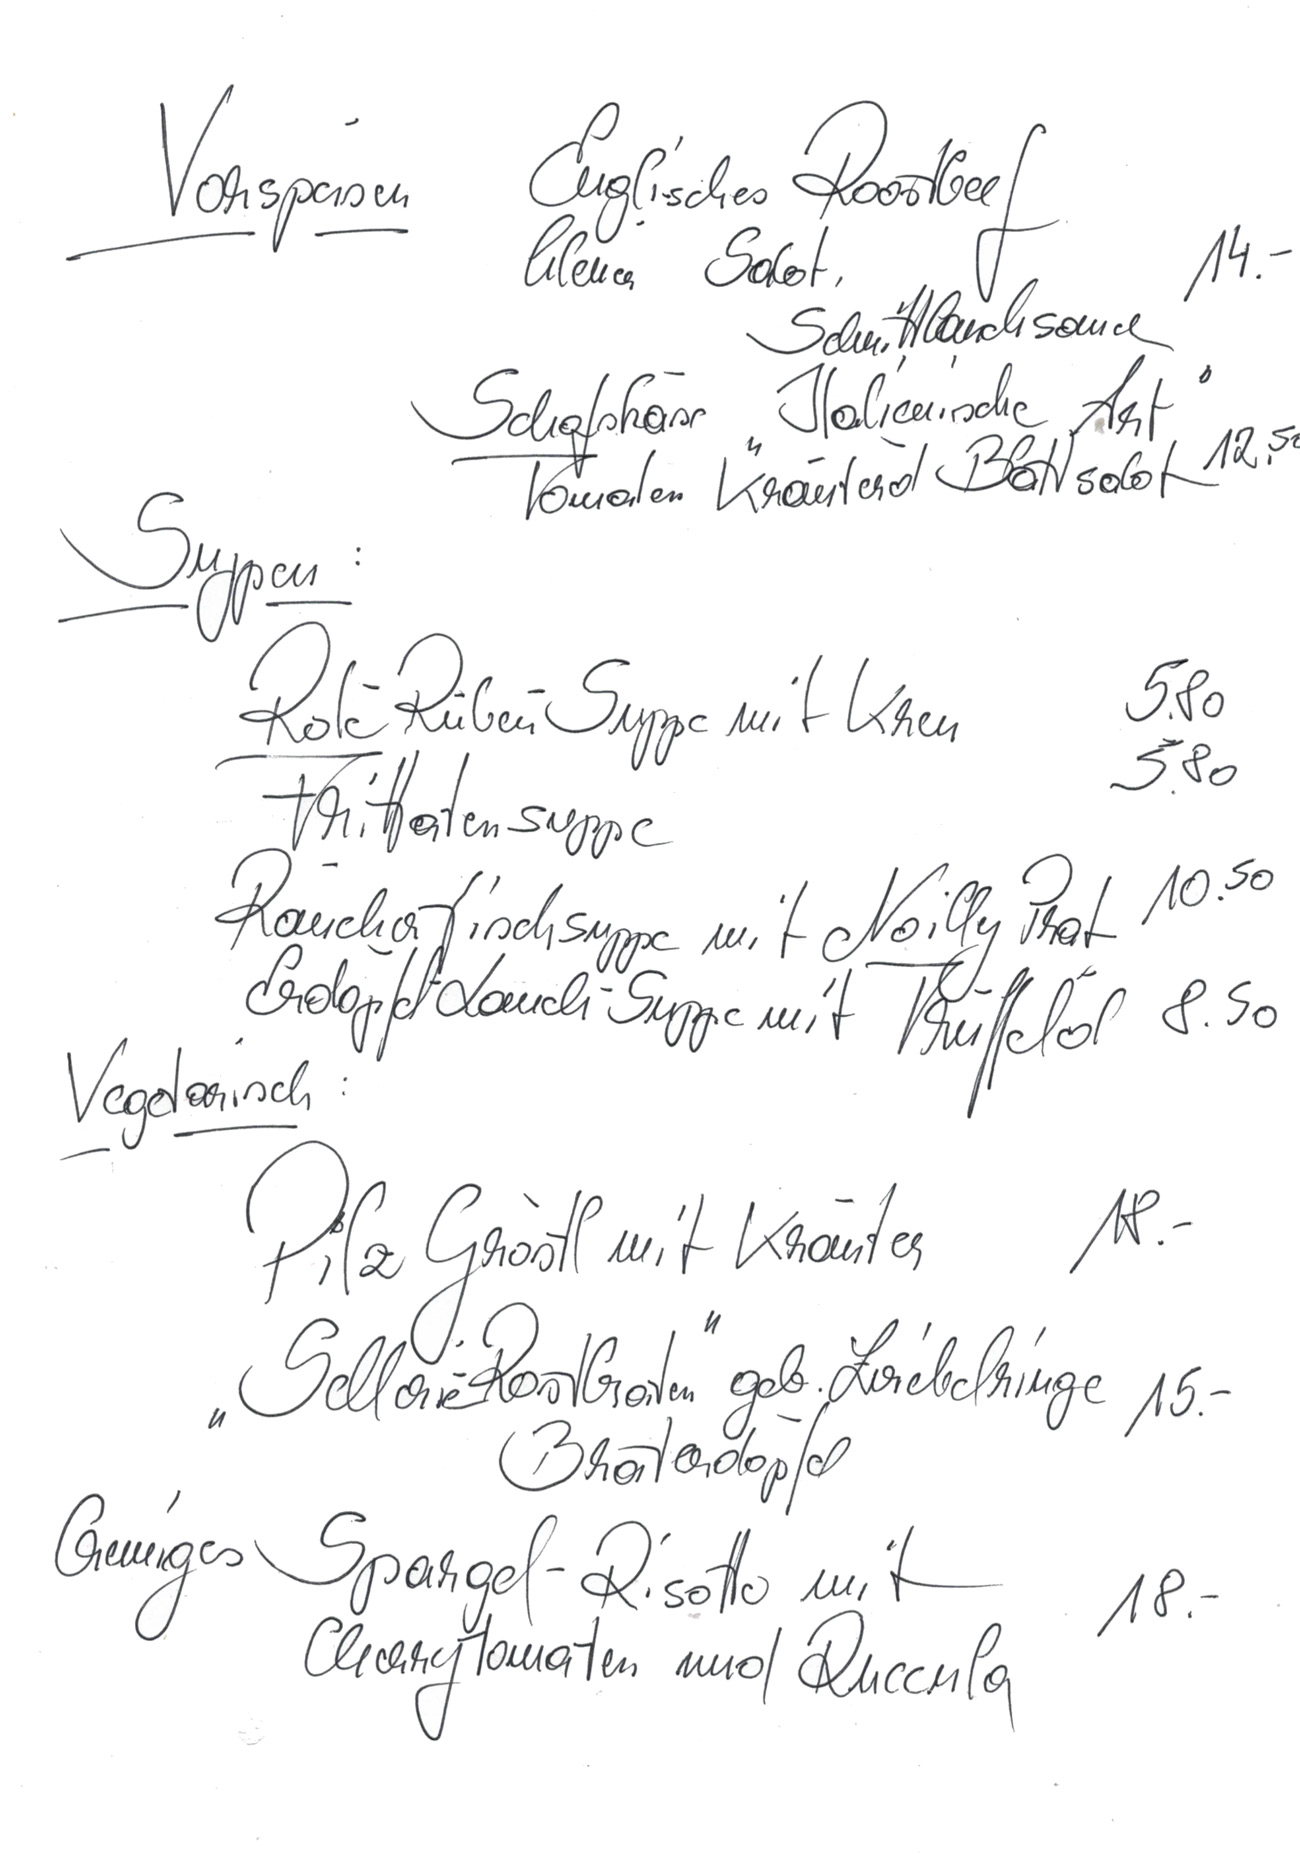 Vorspeisen Englisches Roastbeef
kleiner Salat, 14.-
Schnittlauchsauce
Schafskäse "Italienische Art"
Tomaten Kräuteröl Blattsalat 12,50
Suppen:
Rote Rüben Suppe mit Kren 5.80
Frittatensuppe 5.80
Räucherfischsuppe mit Noilly Prat 10.50
Erdäpfel-Lauch-Suppe mit Trüffelöl 8.50
Vegetarisch:
Pilz Gröstl mit Kräuter 18.-
"Sellerie Rostbraten" geb. Zwiebelringe 15.-
Braterdäpfel
Cremiges Spargel-Risotto mit 18.-
Cherrytomaten und Ruccula